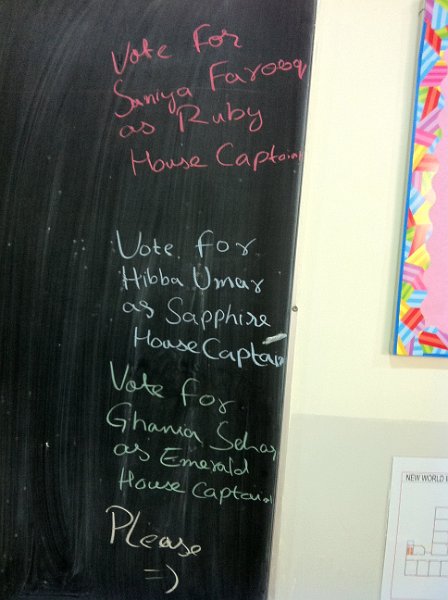 Vote for
Saniya Farooq
as Ruby
House Captain
Vote for
Hibba Umar
as Sapphire
House Captain
Vote for
Ghania Sehar
as Emerald
House Captain
Please
=)
NEW WORLD